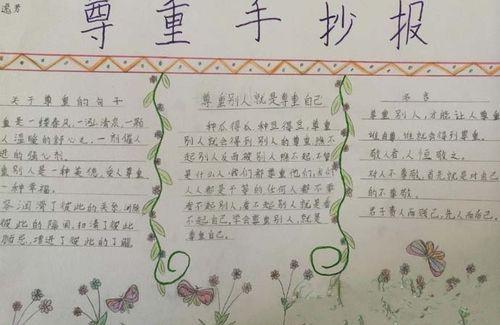 尊重手抄报
关于尊重的句子
重是一缕春风,一泓清泉,一颗
人温暖的舒心之,一剂催人
进的强心剂。
重别人是一种美德,受人尊重
一种幸福。
容润滑了彼此的关系,消除
彼此的隔阂,扫清了彼此
顾忌,增进了彼此的了解
尊重别人就是尊重自己
种瓜得瓜,种豆得豆,尊重
别人就会得到别人的尊重,瞧不
起别人反而被别人瞧不起,不管
是什么人,我们都尊重他们,因为
人人都是平等的任何人都不要
看不起别人,看不起别人就是看
不起自己,学会尊重别人,就是
尊重自己。
名言
尊重别人,才能让人尊重
谁自尊,谁就会得到尊重。
敬人者,人恒敬之。
对人不尊敬,首先就是对自己
的不尊敬。
君子贵人而贱己,先人而后己。